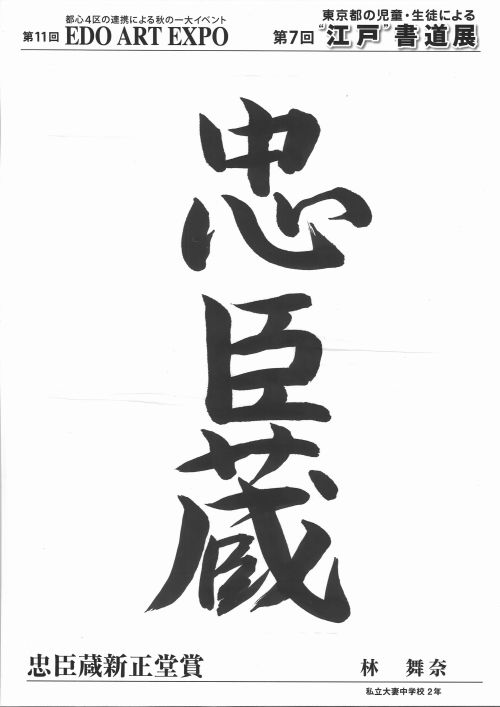 都心4区の連携による秋の一大イベント
第11回 EDO ART EXPO
東京都の児童・生徒による
第7回 “江戸”書道展
忠臣蔵
忠臣蔵新正堂賞
林 舞奈
私立大妻中学校 2年